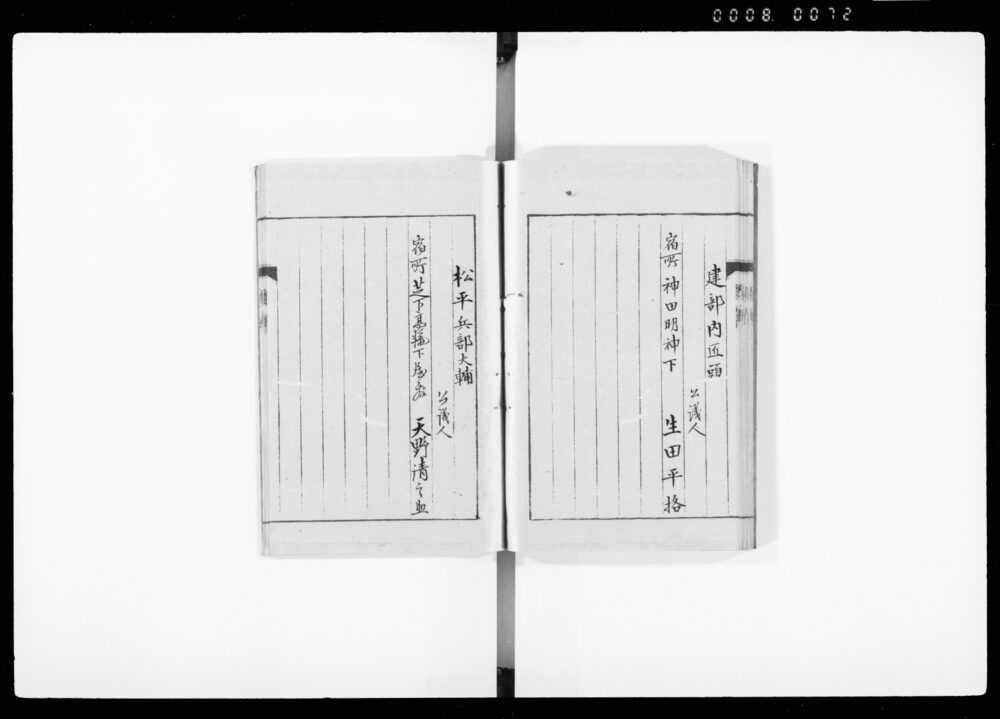 0008 0072
建部内匠頭
公議人
宿所神田明神下 生田平格
松平兵部大輔
公議人
宿所芝下高輪下屋敷 天野清之助